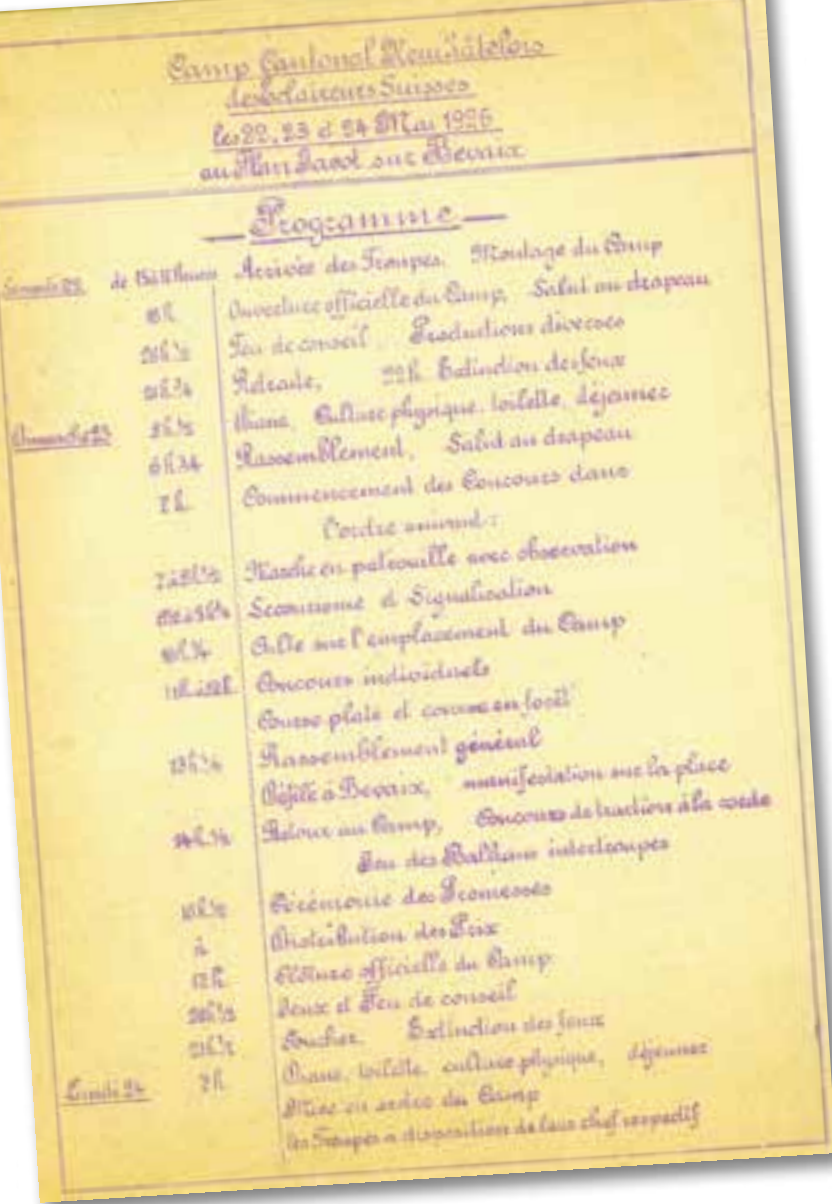 Camp Cantonal Neuchâtelois
des Eclaireurs Suisses
les 22, 23 et 24 Mai 1926
au Plan Jacot sur Bevaix
Programme
Samedi 22 de 15 à 18 heures Arrivée des Troupes. Montage du Camp
18h Ouverture officielle du Camp, Salut au drapeau
20h ½ Feu de conseil. Productions diverses
21h ¾ Retraite, 22h. Extinction des feux
Dimanche 23 5h ½ Diane, Culture physique, toilette, déjeuner
6h ¾ Rassemblement, Salut au drapeau
7h Commencement des Concours dans
l'ordre suivant :
7 à 8h ½ Marche en patrouille avec observation
Secourisme et Signalisation
10h ¼ Culte sur l'emplacement du Camp
11h à 12h Concours individuels
Course plate et course en forêt
13h ¼ Rassemblement général
Défilé à Bevaix, manifestation sur la place
14h ½ Retour au Camp, Concours de traction à la corde
Jeu des Ballons intertroupes
16h ½ Cérémonie des Promesses
à Distribution des Prix
17h Clôture officielle du Camp
20h ½ Jeux et Feu de conseil
21h ½ Coucher. Extinction des feux
Lundi 24 7h Diane, toilette, culture physique, déjeuner
Mise en ordre du Camp
les Troupes à disposition de leur chef respectif